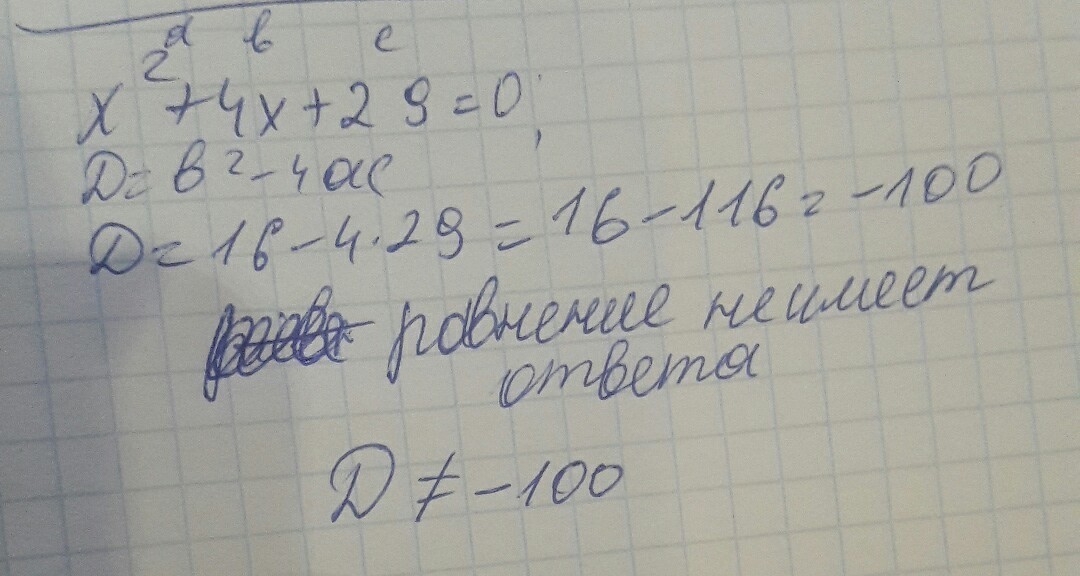 a в c
x² + 4x + 29 = 0;
D = в² - 4ac
D = 16 - 4·29 = 16 - 116 = -100
равнение неимеет
ответа
D ≠ -100